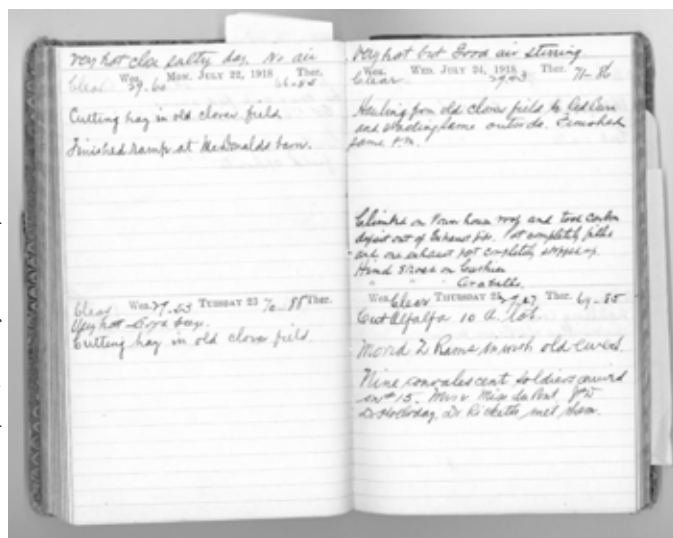 Very hot close salty day. No air
Clear Wea. 29.60 MON. JULY 22, 1918 Ther. 66-88
Cutting hay in old clover field.
Finished ramp at McDonalds barn.
Clear Wea. 29.53 TUESDAY 23 70-88 Ther.
Very hot - Good
Cutting hay in old clover field.
Very hot but Good air stirring
Clear Wea. WED. JULY 24, 1918 29.53 Ther. 71-86
Hauling from old clover field to Barn
and same outside. Finished
same P.M.
Climbed on Power house roof and took Carbon
deposit out of Exhaust pipe. Pot completely filled
and one exhaust port completely stopped up.
Hind Shoes on Cushion
" " " Arabella.
Wea. Clear THURSDAY 25 Ther. 69-85
Cut Alfalfa 10 A. lot.
Moved 2 Rams in with old ewes.
Nine convalescent soldiers arrived
on #15. Mrs & Miss du Pont
Dr Holloday, Dr Ricketts met them.